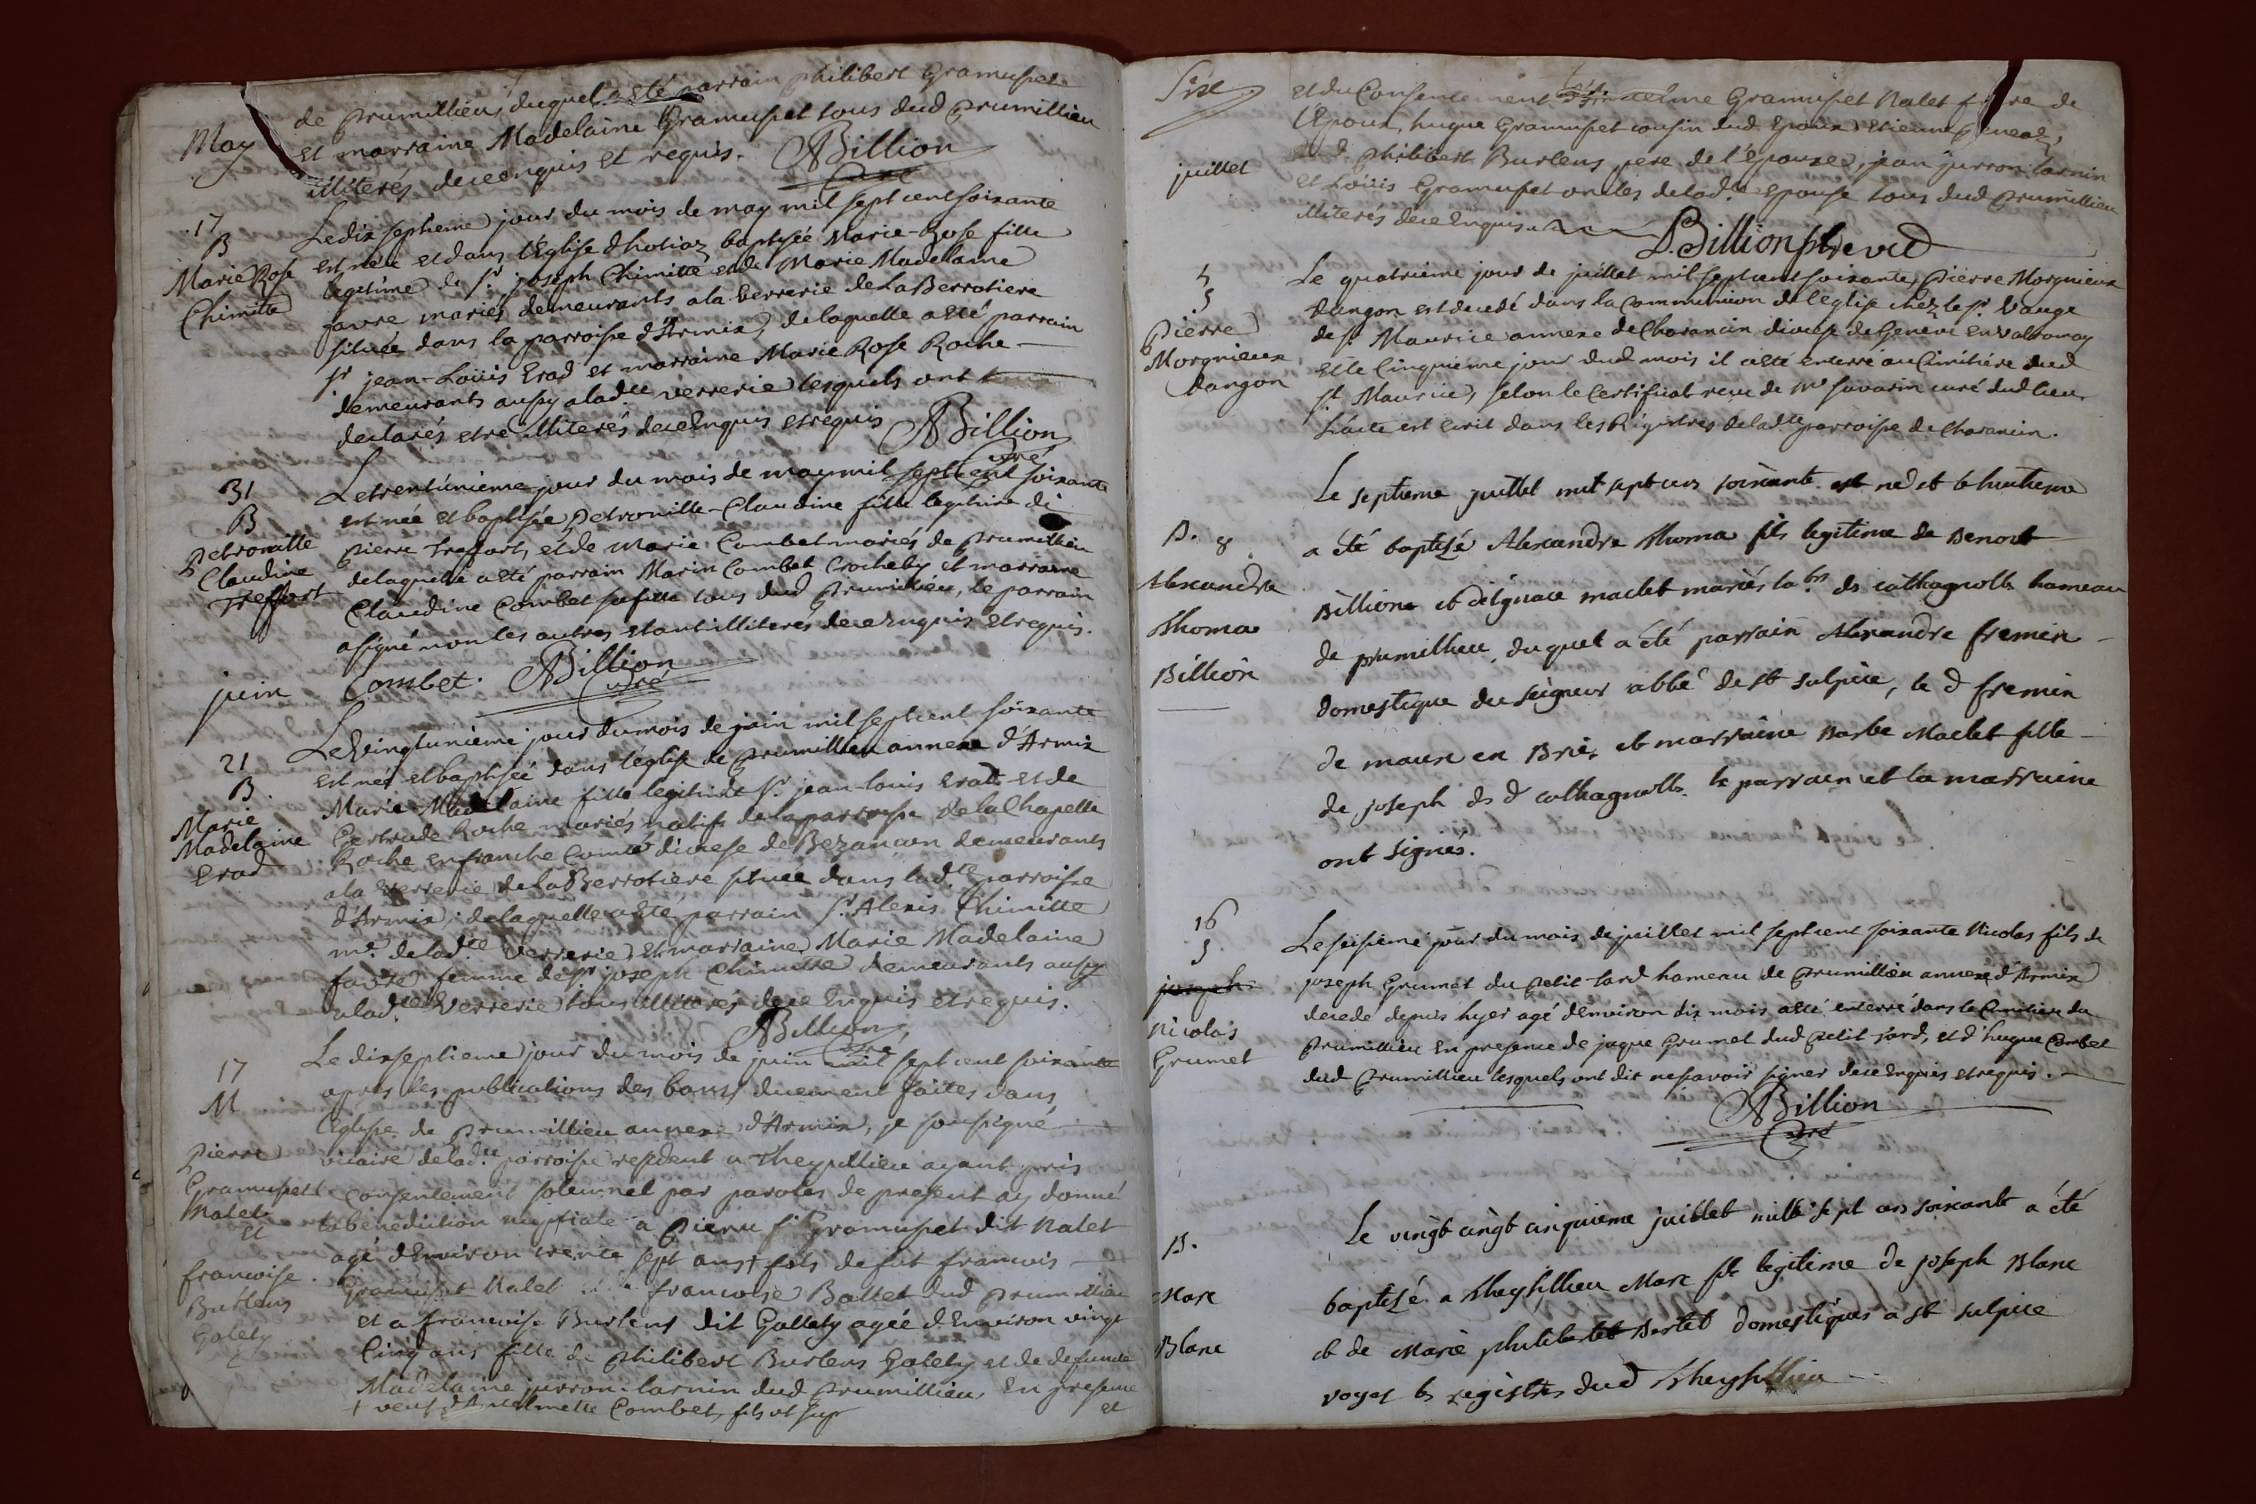 May
de prumillieu, duquel a eté parrain philibert Gramuset
et marraine Madelaine Gramuset tous dud prumillieu
illiterés de ce enquis et requis. ABillion
Curé
17
B
Marie Rose
Chimitte
Le dix septieme jour du mois de may mil sept cent soixante
est née et dans l'Eglise d'hotiaz baptisée Marie-Rose fille
legitime de sr joseph Chimitte et de Marie Madelaine
favre mariés demeurants a la verrerie de La Berrotiere
située dans la parroisse d'Armix, de laquelle a eté parrain
sr jean-Loüis Erad et marraine Marie Rose Roche
demeurants aussy a ladte verrerie lesquels ont
declarés etre illiterés de ce Enquis et requis ABillion
curé
31
B
Petronille
Claudine
Treffort
Le trent'unieme jour du mois de may mil sept cent soixante
est née et baptisée Petronille-Claudine fille legitime de
pierre Treffort, et de Marie Combet mariés de prumillieu
de laquelle a eté parrain Marin Combet Crochety et marraine
Claudine Combet sa fille tous dud prumillieu, le parrain
a signé non les autres etant illiteres de ce Enquis et requis.
Combet. ABillion
curé
juin
21
B.
Marie
Madelaine
Erad
Le Vingtunieme jour du mois de juin mil sept cent soixante
est née et baptisée dans l'eglise de prumillieu annexe d'Armix
Marie-Madelaine fille legitime sr jean-louis Eratt et de
Gertrude Roche mariés natifs de la parroisse de la Chapelle
Roche en franche Comté diocese de Bezancon demeurants
a la verrerie de La Berrotiere située dans ladte parroisse
d'Armix, de laquelle a eté parrain sr Alexis Chimitte
me de ladte verrerie et marraine Marie Madelaine
favre femme de sr joseph Chimitte demeurants aussy
a ladte Verrerie tous illiterés de ce Enquis et requis.
ABillion
Curé
17
M
Pierre
Gramusett
Nalet
et
francoise
Burlens
Galety
Le dixseptieme jour du mois de juin mil sept cent soixante
apres les publications des bans duement faites dans
l'eglise de prumillieu annexe d'Armix, je soussigné
vicaire de ladte parroisse resident a Theysillieu ayant pris
consentement solennel par paroles de present ay donné
la benediction nuptiale a Pierre Gramuset dit Nalet
agé d'Environ trente sept ans + fils de fut francois
Gramuset Nalet francoise Battet dud prumillieu
et a francoise Burlens dit Gallety agée d'Environ vingt
Cinq ans fille de philibert Burlens Galety et de defunte
Madelaine jurron-larnin dud prumillieu En presence
+ veuf d'Anthelmette Combet, fils ut sup
et
Sixe
juillet
et du Consentement Gramuset Nalet frere de
l'Epoux, hugue Gramuset cousin dud Epoux Etienne
d. philibert Burlens pere de l'épouse, jean jurron larnin
et Loüis Gramuset oncles de ladte Epouse tous dud prumillieu
illiterés de ce Enquis.
D.Billion ptre vic
5
S
Pierre
Morgnieux
Dangon
Le quatrieme jour de juillet mil sept cent soixante pierre Morgnieux
Dangon est decedé dans la Communion de l'eglise chez le sr Vauge
de st Maurice annexe de Charancin diocese de Geneve En Valromay
et le Cinquieme jour dud mois il a eté enterré au Cimitiére dud
st Maurice, selon le Certificat recu de Mr Savarin curé dud lieu
L'acte est ecrit dans les Registres de ladte parroisse de Charancin.
B. 8
Alexandre
Thomas
Billion
Le septieme juillet mil sept cens soixante est né et le huitieme
a été baptizé Alexandre Thoma fils legitime de Benoit
Billion et d'ignace maclet mariés labrs de cathagnolle hameau
de prumillieu, duquel a été parrain Alexandre fremin
domestique du seigneur abbé de st sulpice, le d fremin
de maux en Brie, et marraine Barbe Maclet fille
de joseph de d cathagnolle. le parrain et la marraine
ont signés.
16
S.
joseph
Nicolas
Grumet
Le seisieme jour du mois de juillet mil sept cent soixante Nicolas fils de
joseph Grumet du petit-sard hameau de prumillieu annexe d'Armix
decede depuis hyer agé d'environ dix mois a eté enterré dans le Cimitiere du
prumillieu En presence de jaque Grumet dud petit-sard, et d'hugue Combet
dud prumillieu lesquels ont dit ne savoir signer de ce enquis et requis.
ABillion
Curé
B.
Marc
Blanc
Le vingt cingt cinquieme juillet mille sept cens soixante a été
baptizé a Theysillieu Marc fils legitime de joseph Blanc
et de Marie philiberte Bertet domestiques a st sulpice
voyes les registres dud Theysillieu